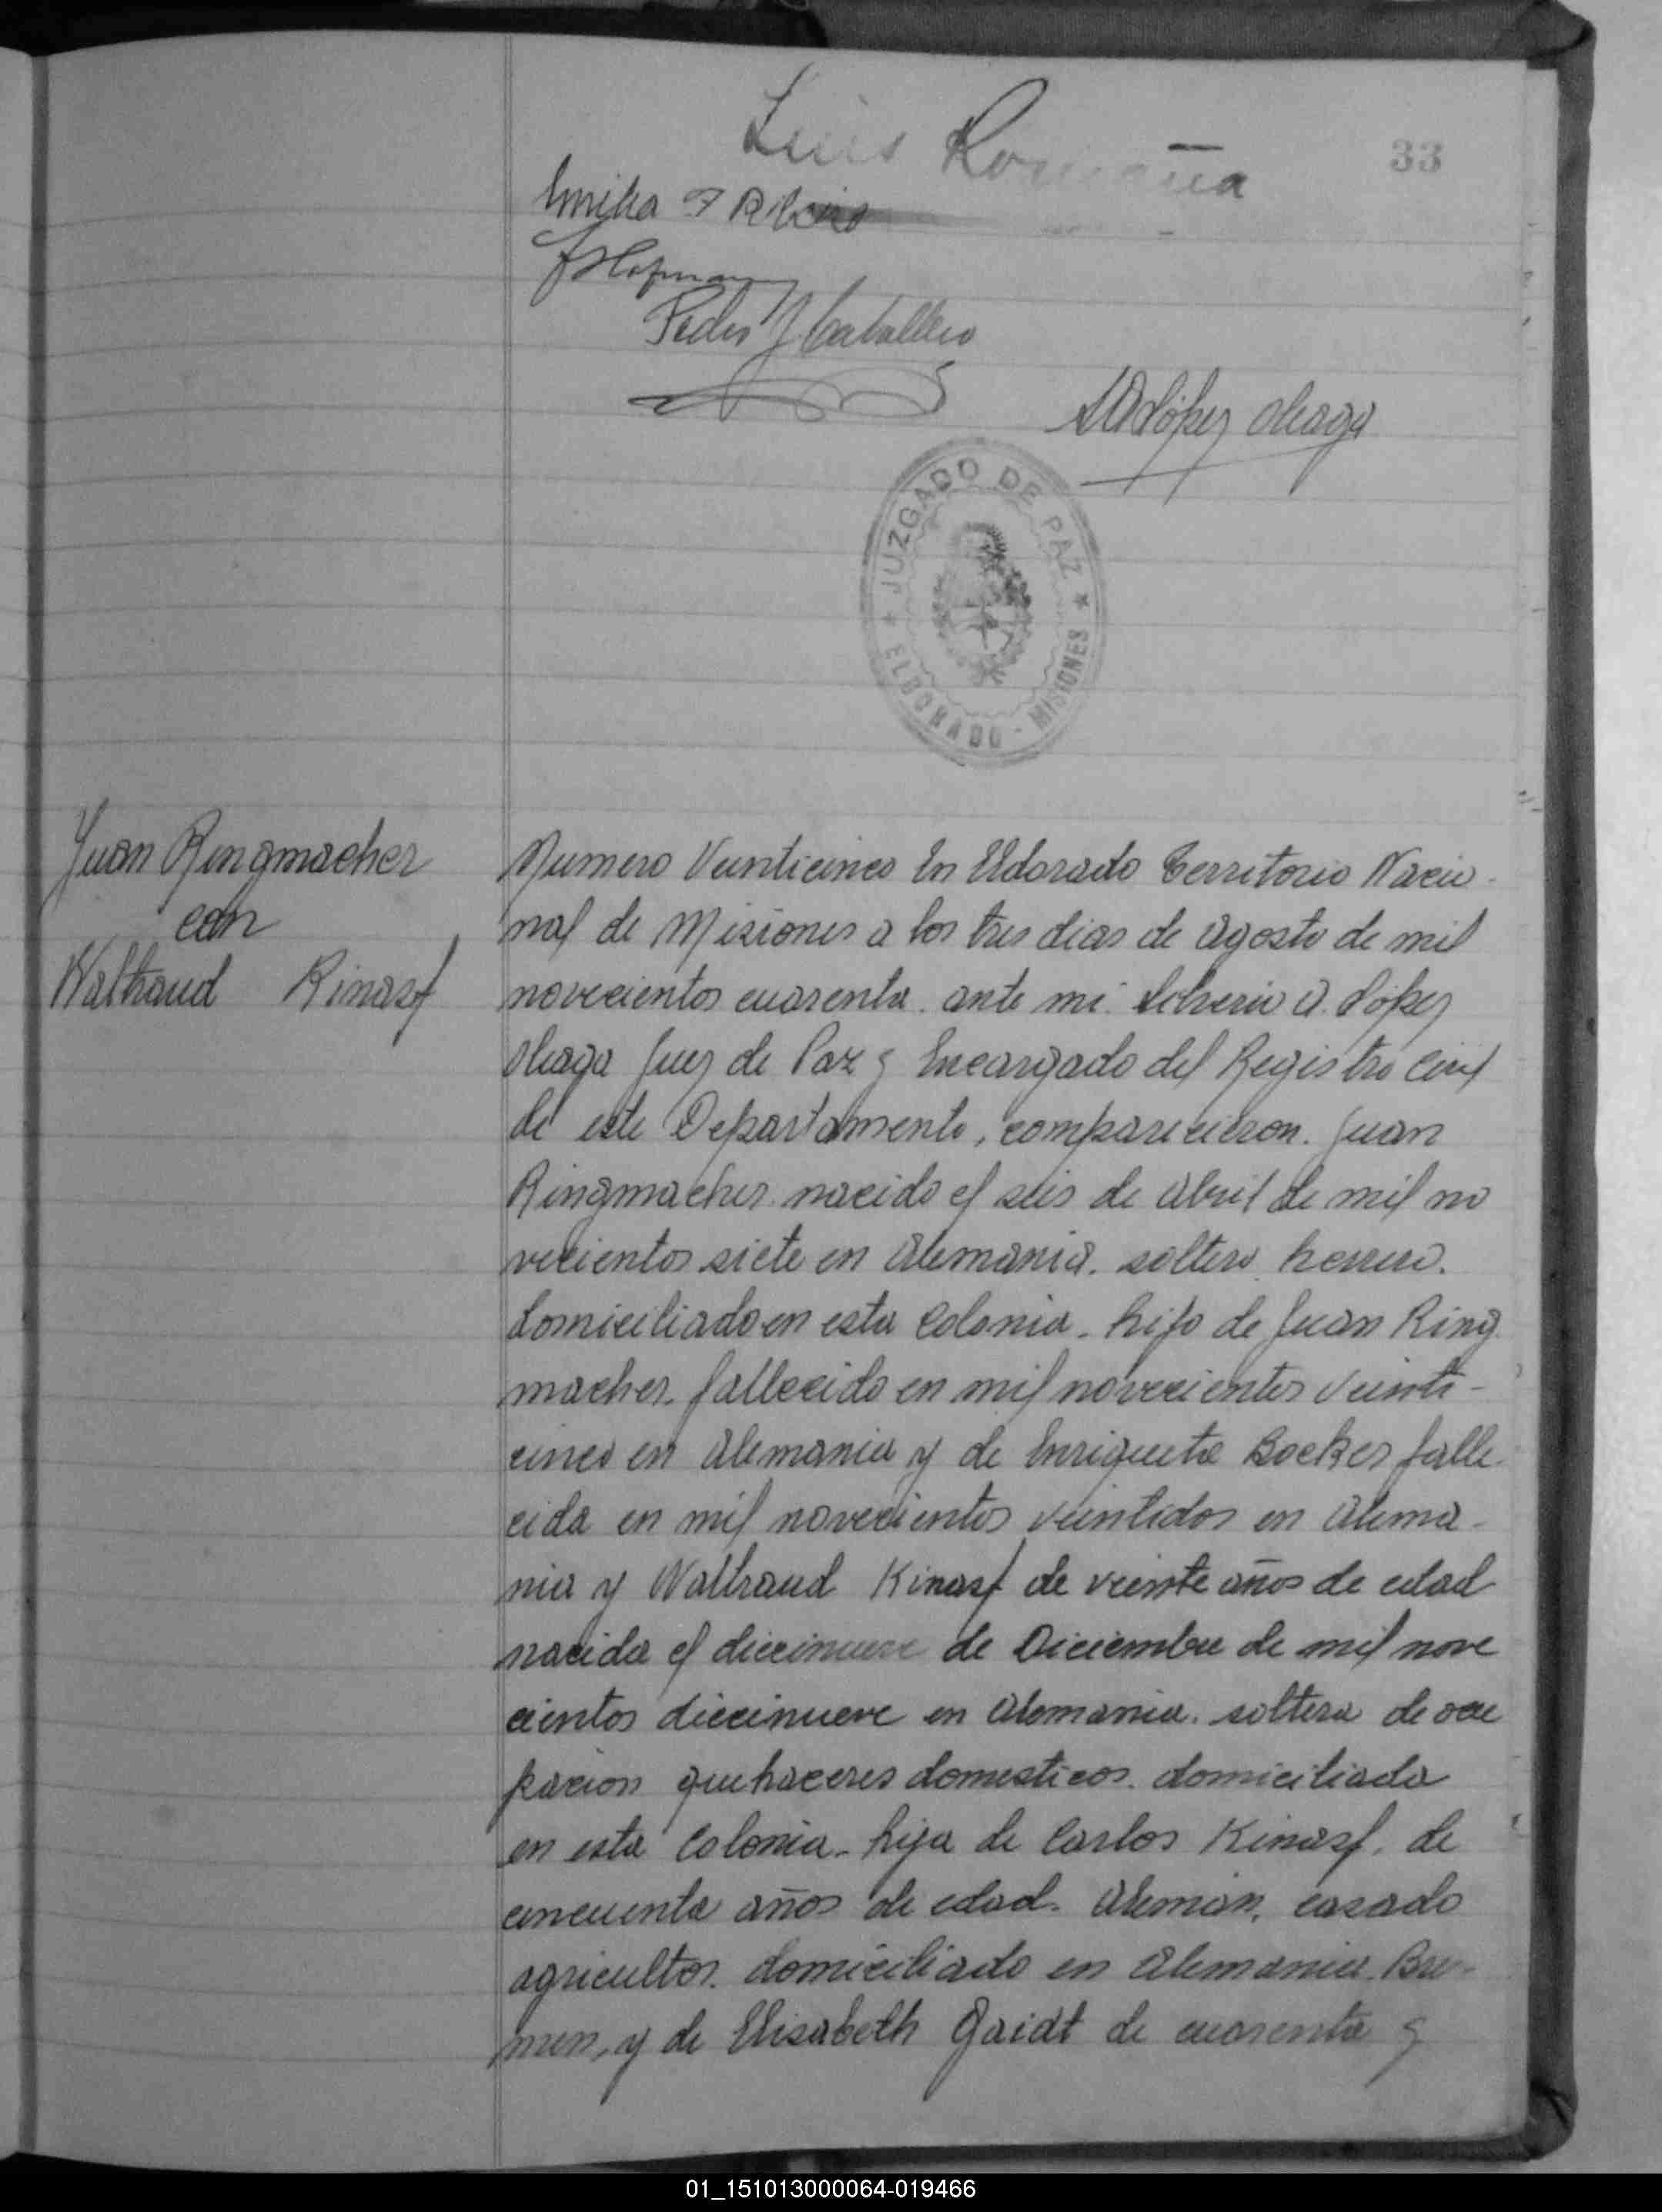 Luis Romaña
33
Emilia F Ribeiro
Pedro J Caballero
López Oleaga
JUZGADO DE PAZ
ELDORADO - MISIONES
Juan Ringmacher
con
Waltraud Kinast
Numero Veinticinco En Eldorado Territorio Nacio-
nal de Misiones a los tres dias de Agosto de mil
novecientos cuarenta. ante mi. A. López
Oleaga Juez de Paz y Encargado del Registro Civil
de este Departamento, comparecieron. Juan
Ringmacher nacido el seis de Abril de mil no
vecientos siete en Alemania. soltero herrero.
domiciliado en esta Colonia - hijo de Juan Ring
macher. fallecido en mil novecientos veinti-
cinco en Alemania y de Enriqueta Bocker falle-
cida en mil novecientos veintidos en Alema-
nia y Waltraud Kinast de veinte años de edad
nacida el diecinueve de Diciembre de mil nove
cientos diecinueve en Alemania. soltera de ocu
pacion quehaceres domesticos. domiciliada
en esta Colonia - hija de Carlos Kinast. de
cincuenta años de edad. Alemán, casado
agricultor. domiciliado en Alemania. Bre-
men, y de Elisabeth Gaidt de cuarenta y
01_151013000064-019466